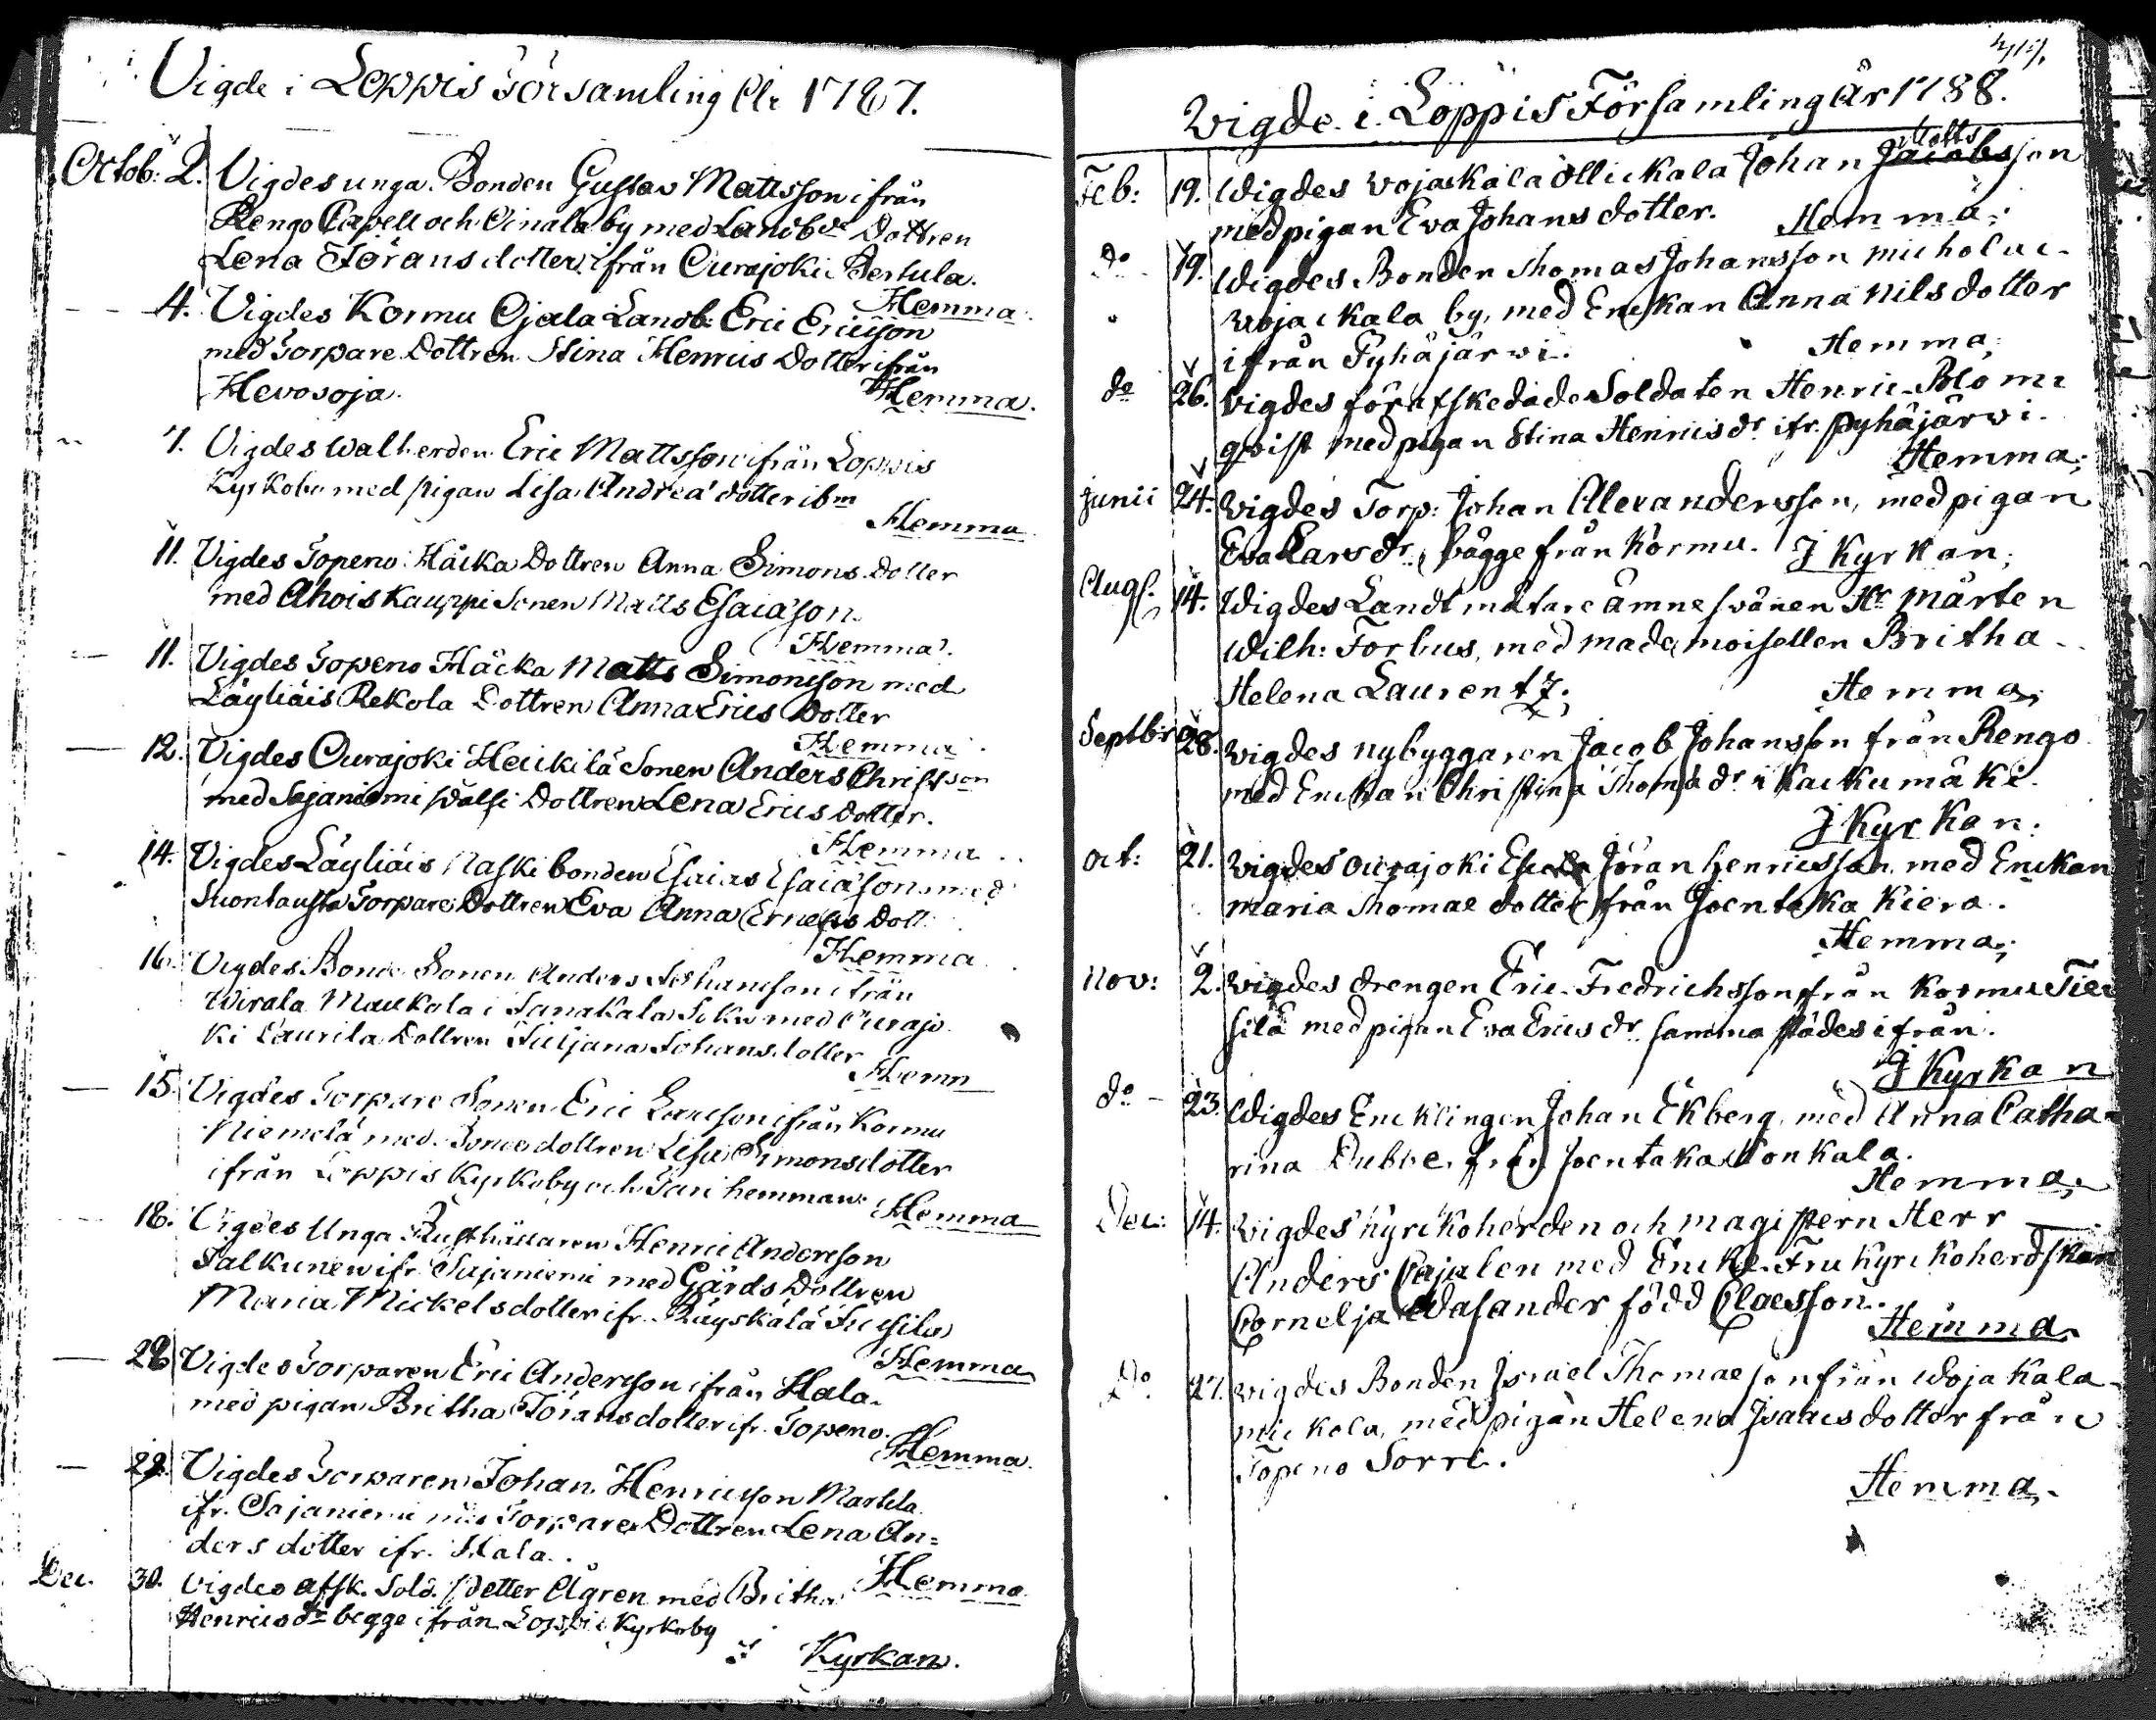 Vigde i Loppis Församling År 1787.
Octob: 2. Vigdes unga Bonden Gustav Mattsson ifrån
Rengo Capell och Oinala by med Landb:de Dottren
Lena Jörans dotter ifrån Ourajoki Pertula.
Hemma.
4. Vigdes Kormu Ojala Landb: Eric Ericsson
med Torpare Dottren Stina Henrics Dotter ifrån
Hevosoja. Hemma.
7. Vigdes Eric Mattsson ifrån Loppis
Kyrkoby med pigan Lisa Andreæ dotter ib:m
Hemma
11. Vigdes Topeno Häcka Dottren Anna Simons dotter
med Ahois Kauppi Sonen Matts Esaiæson.
Hemma.
11. Vigdes Topeno Häcka Matts Simonsson med
Läyliäis Rekola Dottren Anna Erics Dotter
Hemma.
12. Vigdes Ourajoki Heickilä Sonen Anders Christson
med Sajaniemi Dottren Lena Erics dotter.
Hemma
14. Vigdes Läyliäis Naski bonden Esaias Esaiæson med
Suontausta Torpare Dottren Eva Anna Dott:
Hemma
16. Vigdes Bonde Sonen Anders Johansson ifrån
Wirala Maukola i Janakala Sokn med Ourajo
ki Laurila Dottren Juljana Johans dotter
Hemm
15. Vigdes Torpare Sonen Eric Larsson ifrån Kormu
Niemelä med dottren Lisa Simonsdotter
ifrån Loppis Kyrkoby och hemman.
Hemma
18. Vigdes Unga Rusthållaren Henric Andersson
Salkunen ifr. Sajaniemi med Gärds Dottren
Maria Mickelsdotter ifr. Räyskälä
Hemma
28 Vigdes Torparen Eric Andersson ifrån Hala
med pigan Britha Jöransdotter ifr. Topeno.
Hemma.
29. Vigdes Torparen Johan Henricsson Martila
ifr. Sajaniemi med Torpare Dottren Lena An=
ders dotter ifr. Hala.
Hemma.
Dec. 30. Vigdes afsk. Sold. Petter Ågren med Britha
Henrics d:r begge ifrån Loppis Kyrkoby
i Kyrkan.
Wigde i Loppis Församling År 1788.
Feb: 19. Wigdes Wojaskala Ollickala Johan Jacobsson
Matts
med pigan Eva Johans dotter. Hemma;
d:o 19. Wigdes Bonden Thomas Johansson Mickola i
Wojackala by, med Enckan Anna Nils dotter
ifrån Pyhäjärwi. Hemma;
d:o 26. Vigdes förafskedade Soldaten Henric Blom
qwist med pigan Stina Henrics d:r ifr. Pyhäjärwi.
Hemma;
Junii 24. Vigdes Torp: Johan Alexandersson, med pigan
Eva Lars d:r, bägge från Kormu. I Kyrkan;
Aug. 14. Wigdes Landtmätare ämnesvänen H:r Mårten
Wilh: Forbus, med mademoisellen Britha
Helena Laurentz; Hemma;
Septbr 28. Vigdes nybyggaren Jacob Johansson från Rengo
med Enckan Christina Thomæ d:r i Kaickumäki.
I Kyrkan.
Oct: 21. Vigdes Ourajoki Jöran Henricsson med Enckan
Maria Thomæ dotter från Joentacka Kiera.
Hemma;
Nov: 2. Vigdes drengen Eric Fredrichsson från Kormu
silä med pigan Eva Erics d:r samma städes ifrån.
I Kyrkan
d:o 23. Wigdes Encklingen Johan Ekberg, med Anna Catha=
rina Dubbe från Joentaka Wonkala.
Hemma;
Dec: 14. Vigdes Kyrckoherden och Magistern Herr
Anders Cajalen med Encke Fru Kyrckoherdskan
Cornelja Wasander född Claesson.
Hemma
D:o 27. Vigdes Bonden Israel Thomæson från Wojakala
Mickola, med pigan Helena Isaacs dotter från
Topeno Sorri.
Hemma.